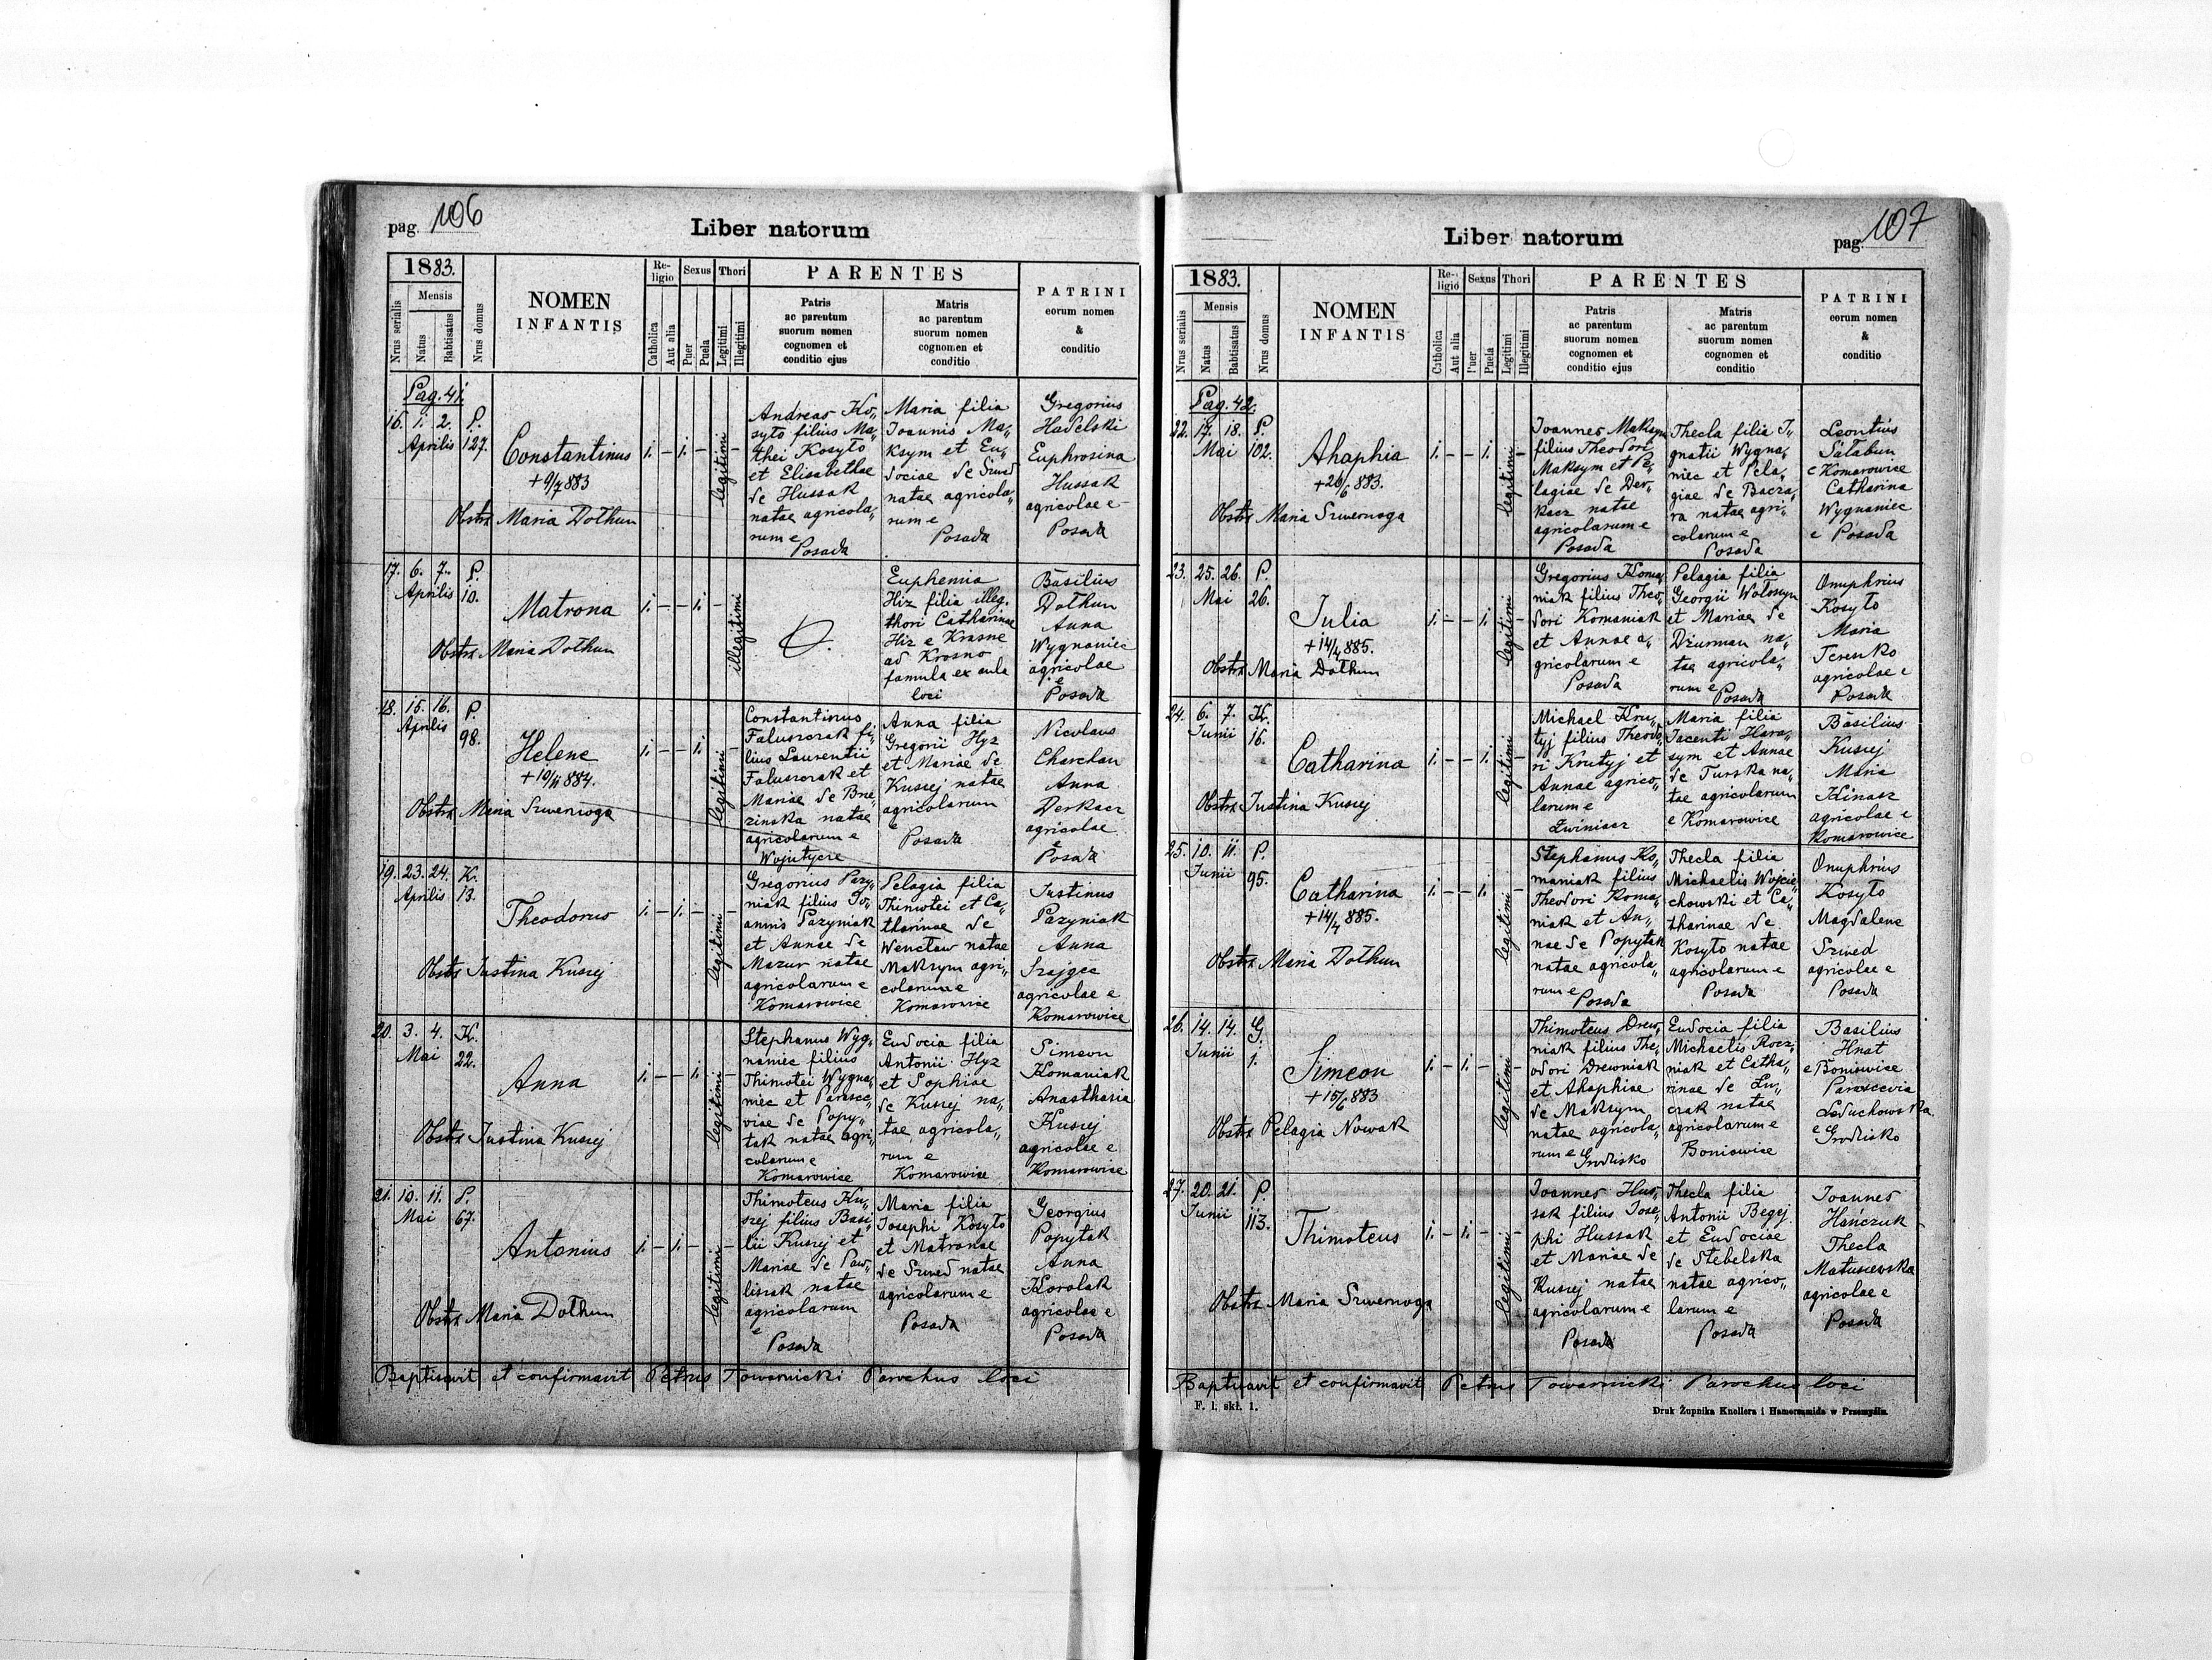 pag. 106
Liber natorum
1883.
Mensis
Nrus serialis
Natus
Babtisatus
Nrus domus
NOMEN
INFANTIS
Religio
Sexus
Thori
Catholica
Aut alia
Puer
Puela
Legitimi
Illegitimi
PARENTES
Patris
ac parentum
suorum nomen
cognomen et
conditio ejus
Matris
ac parentum
suorum nomen
cognomen et
conditio
PATRINI
eorum nomen
&
conditio
Pag. 41.
16. 1. 2. P.
Aprilis 127.
Constantinus
+ 9/7 883
Obstx Maria Dołhun
1. – 1. –
legitimi –
Andreas Ko„
syto filius Ma„
thei Kosyto
et Elisabethae
de Hussak
natae agricola„
rum e
Posada
Maria filia
Joannis Ma„
ksym et Eu„
dociae de Szwed
natae agricola„
rum e
Posada
Gregorius
Hadelski
Euphrosina
Hussak
agricolae e
Posada
17. 6. 7. P.
Aprilis 10.
Matrona
Obstx Maria Dołhun
1. – – 1. –
illegitimi
Euphemia
Hiz filia illeg.
thori Catharinae
Hiz e Krasne
ad Krosno
famula ex aula
loci
Basilius
Dołhun
Anna
Wygnaniec
agricolae
e
Posada
18. 15. 16. P.
Aprilis 98.
Helene
+ 10/11 884.
Obstx Maria Szwernoga
1. – – 1.
legitimi –
Constantinus
Faluszczak fi„
lius Laurentii
Faluszczak et
Mariae de Brze„
zinska natae
agricolarum e
Wojutycze
Anna filia
Gregorii Hyz
et Mariae de
Kuszej natae
agricolarum
e
Posada
Nicolaus
Charchan
Anna
Derkacz
agricolae
e
Posada
19. 23. 24. K.
Aprilis 13.
Theodorus
Obstx Justina Kuszej
1. – 1. –
legitimi –
Gregorius Pazy„
niak filius Jo„
annis Pazyniak
et Annae de
Mazur natae
agricolarum e
Komarowice
Pelagia filia
Thimotei et Ca„
tharinae de
Wencław natae
Maksym agri„
colarum e
Komarowice
Justinus
Pazyniak
Anna
Szajgec
agricolae e
Komarowice
20. 3. 4. K.
Mai 22.
Anna
Obstx Justina Kuszej
1. – – 1.
legitimi –
Stephanus Wyg„
naniec filius
Thimotei Wygna„
niec et Parasce„
viae de Popy„
tak natae agri„
colarum e
Komarowice
Eudocia filia
Antonii Hyz
et Sophiae
de Kuszej na„
tae agricola„
rum e
Komarowice
Simeon
Komaniak
Anasthasia
Kuszej
agricolae e
Komarowice
21. 10. 11. P.
Mai 67.
Antonius
Obstx Maria Dołhun
1. – 1. –
legitimi –
Thimoteus Ku„
szej filius Basi„
lii Kuszej et
Mariae de Paw„
liszak natae
agricolarum
e
Posada
Maria filia
Josephi Kosyto
et Matronae
de Szwed natae
agricolarum e
Posada
Georgius
Popytak
Anna
Korolak
agricolae e
Posada
Baptisavit et confirmavit Petrus Towarnicki Parochus loci
Liber natorum
pag. 107
1883.
Mensis
Nrus serialis
Natus
Babtisatus
Nrus domus
NOMEN
INFANTIS
Religio
Sexus
Thori
Catholica
Aut alia
Puer
Puela
Legitimi
Illegitimi
PARENTES
Patris
ac parentum
suorum nomen
cognomen et
conditio ejus
Matris
ac parentum
suorum nomen
cognomen et
conditio
PATRINI
eorum nomen
&
conditio
Pag. 42.
22. 17. 18. P.
Mai 102.
Ahaphia
+ 26/6 883.
Obstx Maria Szwernoga
1. – – 1.
legitimi –
Joannes Maksym
filius Theodori
Maksym et Pe„
lagiae de Der„
kacz natae
agricolarum e
Posada
Thecla filia I„
gnatii Wygna„
niec et Pela„
giae de Bacza„
ra natae agri„
colarum e
Posada
Leontius
Sałabun
e Komarowice
Catharina
Wygnaniec
e Posada
23. 25. 26. P.
Mai 26.
Julia
+ 14/4 885.
Obstx Maria Dołhun
1. – – 1.
legitimi –
Gregorius Koma„
niak filius Theo„
dori Komaniak
et Annae a„
gricolarum e
Posada
Pelagia filia
Georgii Wołoszyn
et Mariae de
Dzurman na„
tae agricola„
rum e
Posada
Onuphrius
Kosyto
Maria
Terenko
agricolae e
Posada
24. 6. 7. K.
Junii 16.
Catharina
Obstx Justina Kuszej
1. – – 1.
legitimi –
Michael Kru„
tyj filius Theodo„
ri Krutyj et
Annae agrico„
larum e
Zwiniacz
Maria filia
Jacenti Hara„
sym et Annae
de Turska na„
tae agricolarum
e Komarowice
Basilius
Kuszej
Maria
Kinasz
agricolae e
Komarowice
25. 10. 11. P.
Junii 95.
Catharina
+ 14/4 885.
Obstx Maria Dołhun
1. – – 1.
legitimi –
Stephanus Ko„
maniak filius
Theodori Koma„
niak et An„
nae de Popytak
natae agricola„
rum e
Posada
Thecla filia
Michaelis Wojcie„
chowski et Ca„
tharinae de
Kosyto natae
agricolarum e
Posada
Onuphrius
Kosyto
Magdalene
Szwed
agricolae e
Posada
26. 14. 14. G.
Junii 1.
Simeon
+ 15/6 883
Obstx Pelagia Nowak
1. – 1. –
legitimi –
Thimoteus Drew„
niak filius The„
odori Drewniak
et Ahaphiae
de Maksym
natae agricola„
rum e Grodzisko
Eudocia filia
Michaelis Rocz„
niak et Catha„
rinae de Lu„
czak natae
agricolarum e
Boniowice
Basilius
Hnat
e Boniowice
Parascevia
Leduchowska
e
Grodzisko
27. 20. 21. P.
Junii 113.
Thimoteus
Obstx Maria Szwernoga
1. – 1. –
legitimi –
Joannes Hus„
sak filius Jose„
phi Hussak
et Mariae de
Kuszej natae
agricolarum e
Posada
Thecla filia
Antonii Begej
et Eudociae
de Stebelska
natae agrico„
larum e
Posada
Joannes
Hańczuk
Thecla
Matusewska
agricolae e
Posada
Baptisavit et confirmavit Petrus Towarnicki Parochus loci
F. l. skł. 1.
Druk Żupnika Knollera i Hamerszmida w Przemyślu.